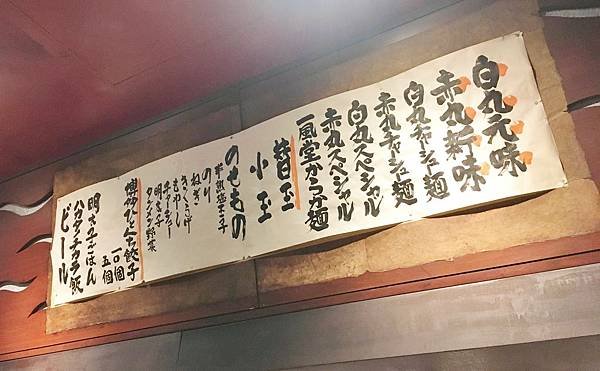 白丸元味
赤丸新味
白丸チャーシュー麺
赤丸チャーシュー麺
白丸スペシャル
赤丸スペシャル
一風堂からか麺
替玉
小玉
のせもの
半熟塩玉子
のり
ねぎ
きくらげ
もやし
チャーシュー
明太子
タンメン野菜
博多ひとくち餃子
一〇個
五個
明太子ごはん
ハカタチカラ飯
ビール